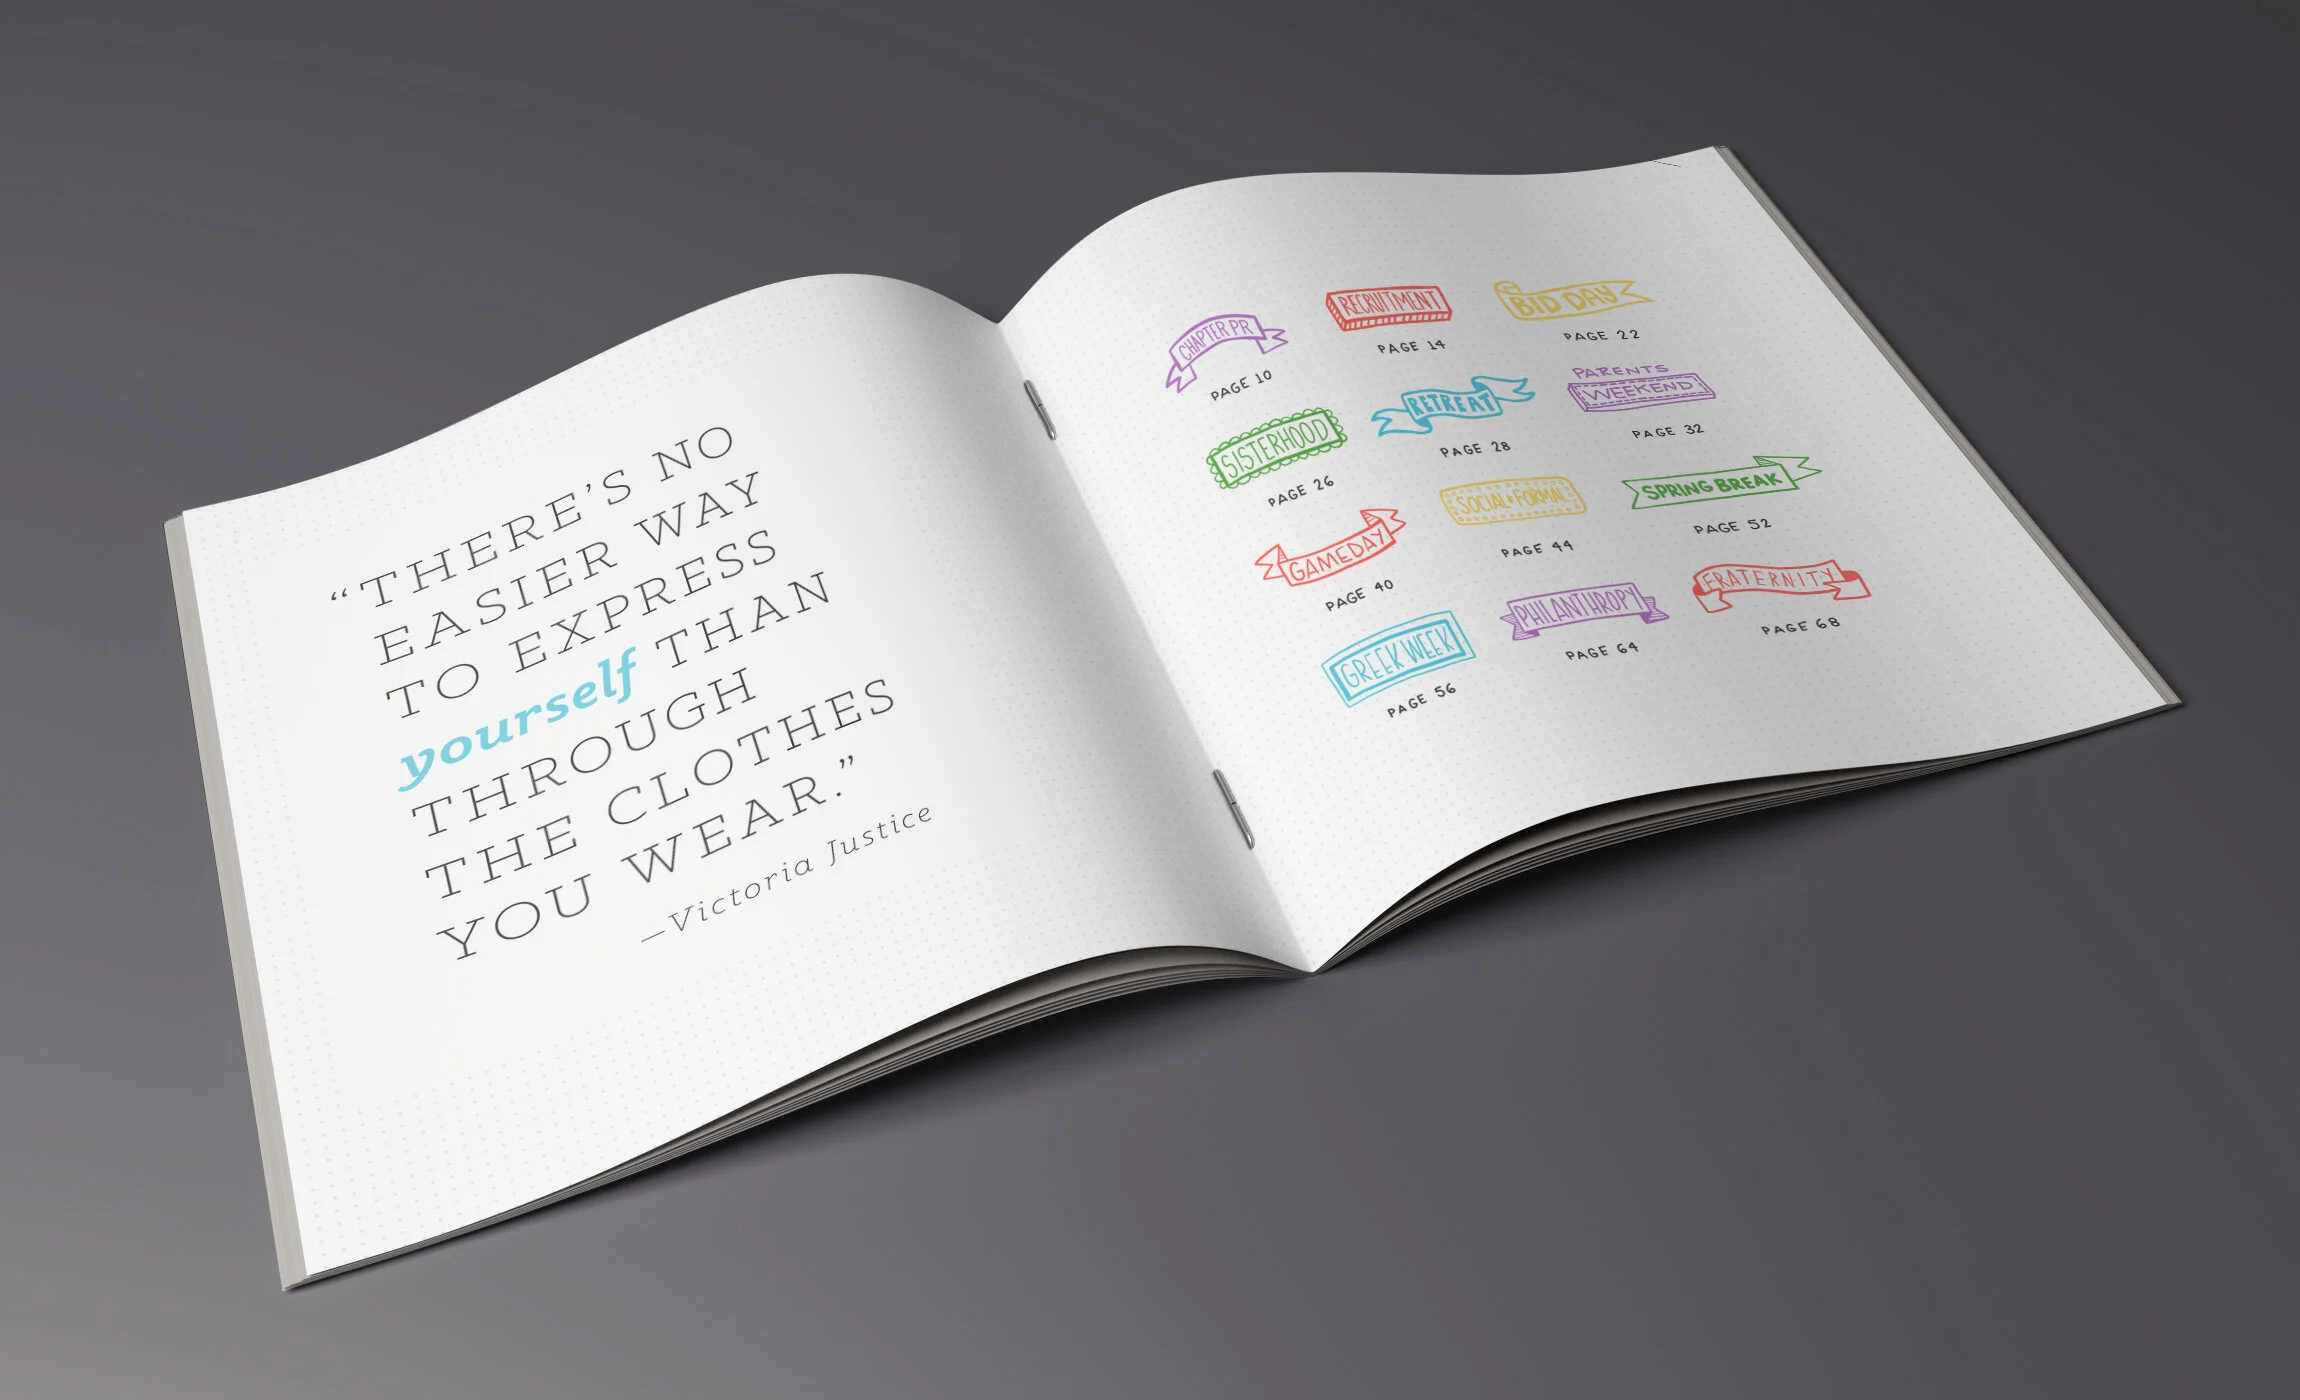 “THERE’S NO
EASIER WAY
TO EXPRESS
yourself THAN
THROUGH
THE CLOTHES
YOU WEAR.”
—Victoria Justice
CHAPTER PR
PAGE 10
RECRUITMENT
PAGE 14
BID DAY
PAGE 22
SISTERHOOD
PAGE 26
RETREAT
PAGE 28
PARENTS
WEEKEND
PAGE 32
GAMEDAY
PAGE 40
SOCIAL & FORMAL
PAGE 44
SPRING BREAK
PAGE 52
GREEK WEEK
PAGE 56
PHILANTHROPY
PAGE 64
FRATERNITY
PAGE 68